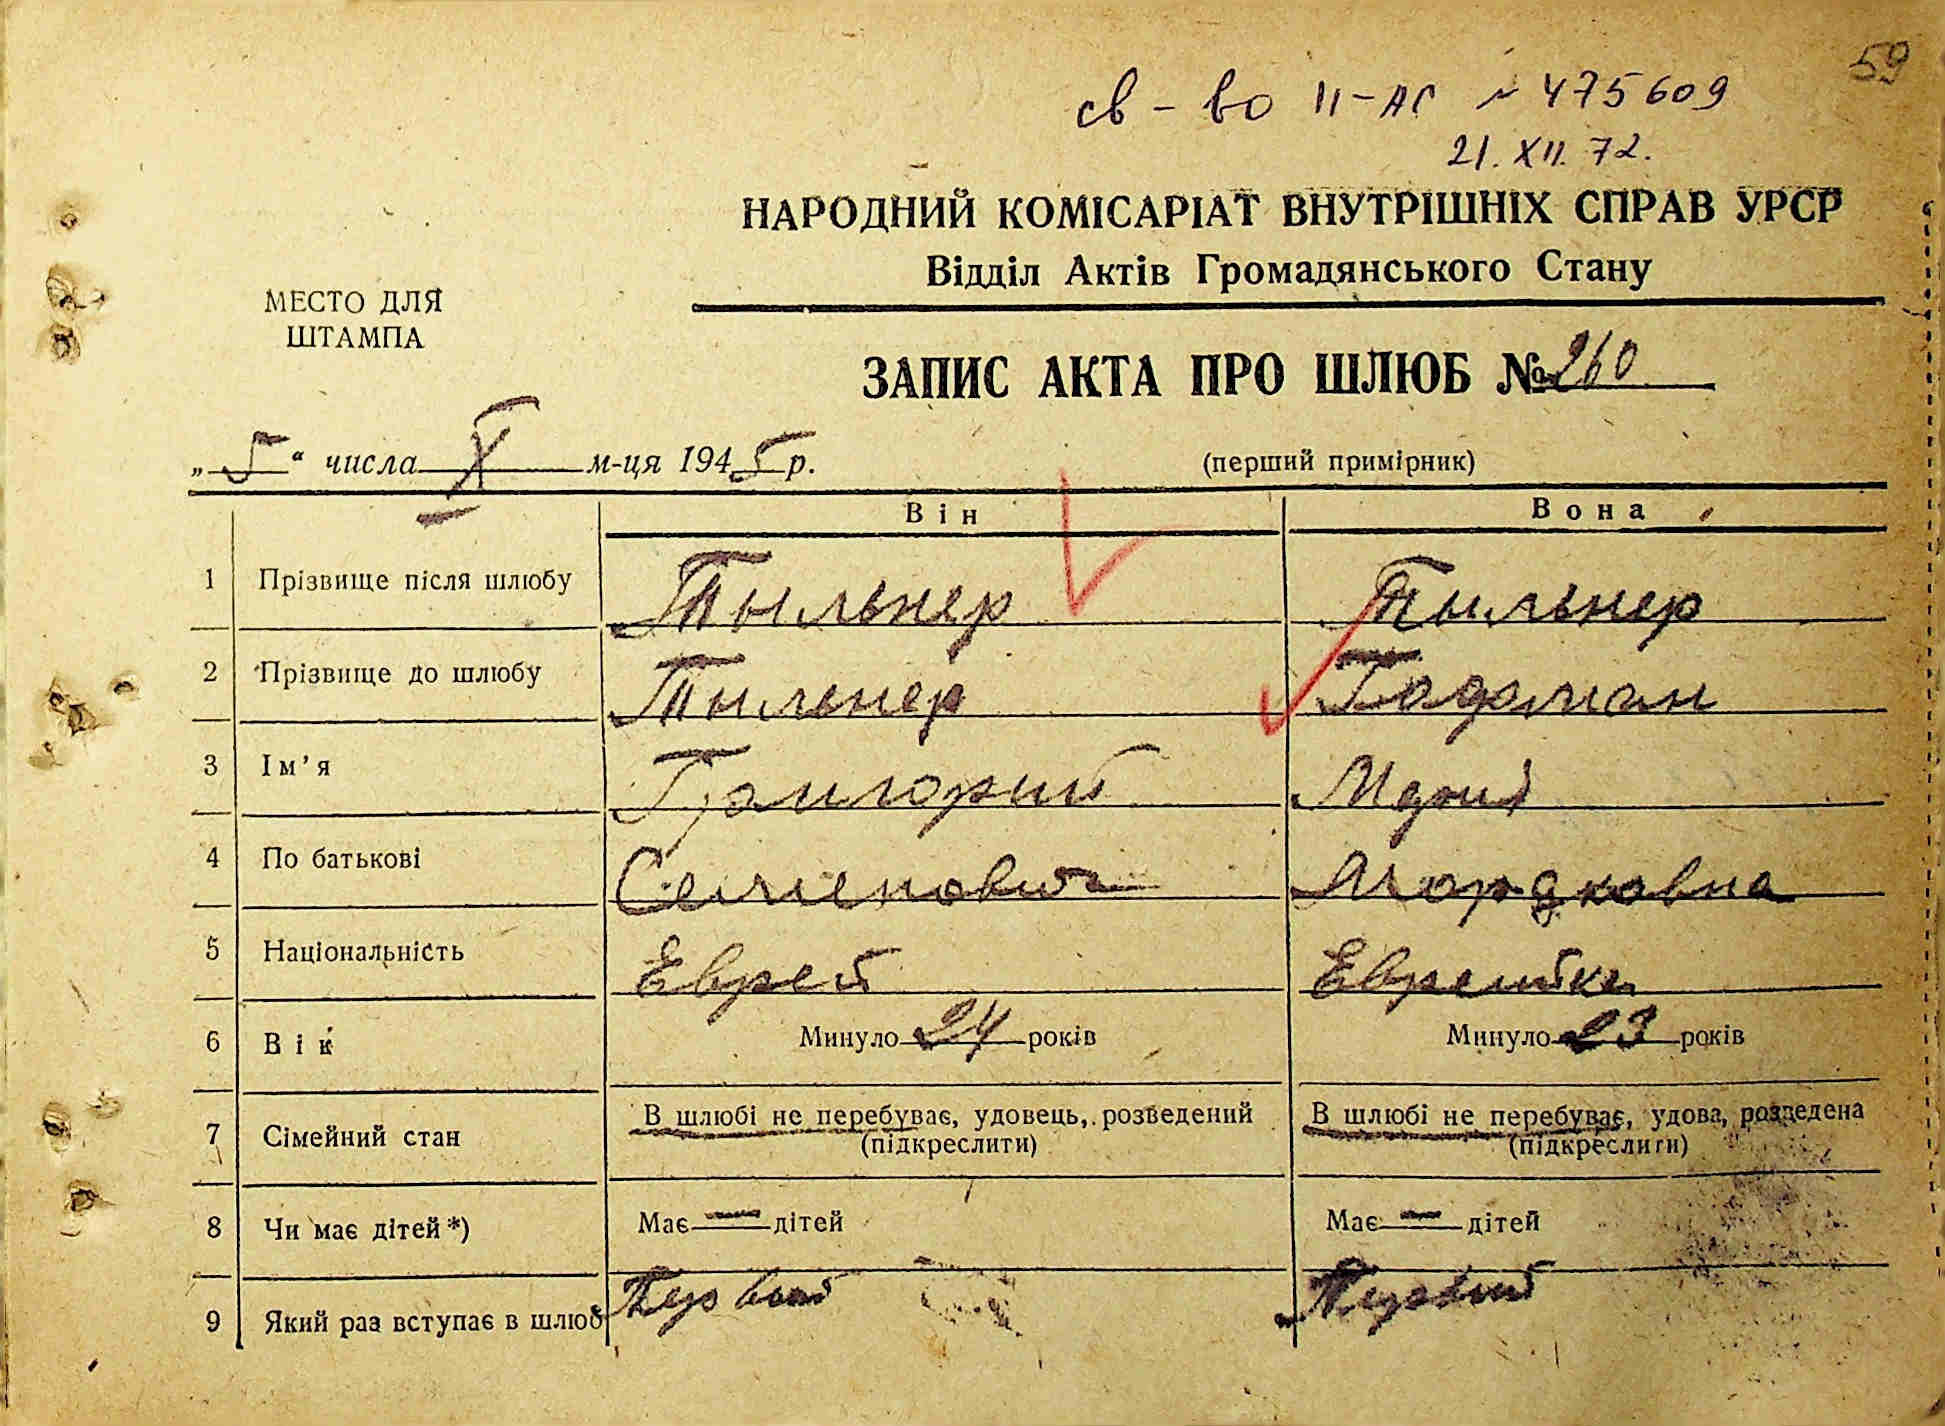 59
св-во II-АС № 475609
21. XII. 72.
НАРОДНИЙ КОМІСАРІАТ ВНУТРІШНІХ СПРАВ УРСР
Відділ Актів Громадянського Стану
МЕСТО ДЛЯ
ШТАМПА
ЗАПИС АКТА ПРО ШЛЮБ № 260
„5“ числа X м-ця 1945 р.
(перший примірник)
Він Вона
1 Прізвище після шлюбу Тыльнер Тыльнер
2 Прізвище до шлюбу Тыльнер
3 Ім'я Григорий Мария
4 По батькові Семенович Мордковна
5 Національність Еврей Еврейка
6 Вік Минуло 24 років Минуло 23 років
7 Сімейний стан В шлюбі не перебуває, удовець, розведений В шлюбі не перебуває, удова, розведена
(підкреслити) (підкреслити)
8 Чи має дітей *) Має — дітей Має — дітей
9 Який раз вступає в шлюб Первый Первый